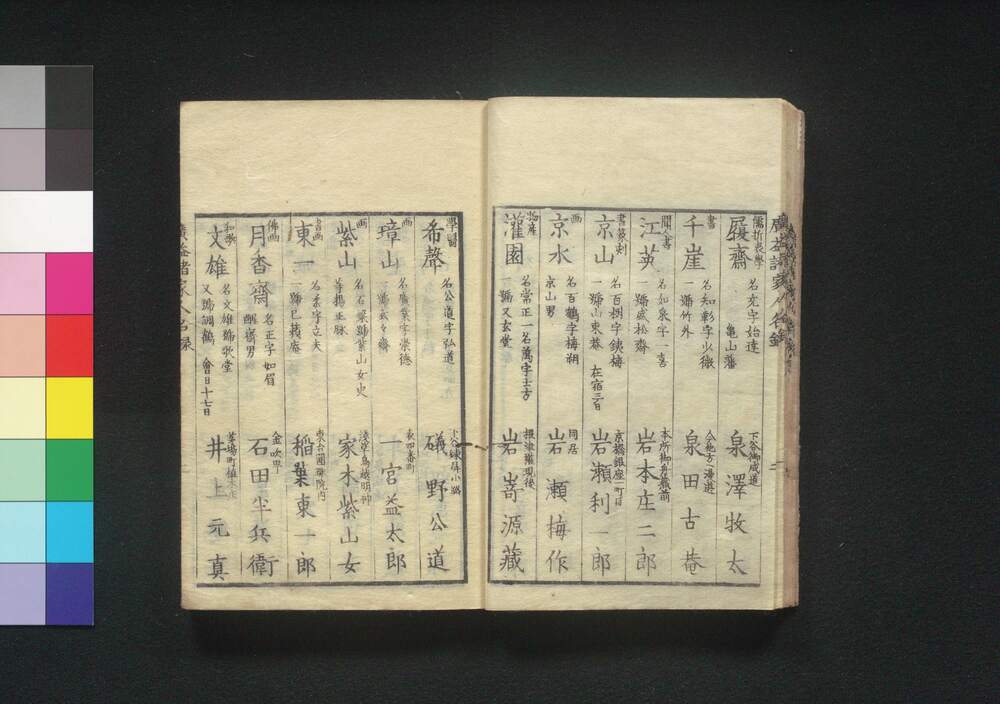 廣益諸家人名録
儒折衷學
履齋 名充字始達 亀山藩 下谷御成道 泉澤牧太
書
千崖 名知彰字少微 一號竹外 泉田古菴
聞人書
江英 名如泉字一喜 一號盛松齋 本所御舟蔵前 岩本庄二郎
書篆刻
京山 名百樹字鉄梅 一號山東菴 在宿三日 京橋銀座一町目 岩瀬利一郎
画
京水 名百鶴字梅朔 京山男 同居 岩瀬梅作
物産
灌園 名常正一名萬字士方 一號又玄堂 岩嵜源藏
學醫
希聲 名公道字弘道 下谷練塀小路 礒野公道
画
璋山 名廣業字崇徳 一號玄々齋 表四番町 一宮益太郎
画
紫山 名石榮號紫山女史 家木紫山女
書画
東一 名系字立夫 一號已蔉菴 稲葉東一郎
佛画
月杳齋 名正字如眉 酔齋男 金吹町 石田半兵衛
和歌
文雄 名文雄號歌堂 又號調鶴 會日十七日 茅場町植木店 井上元真
廣益諸家人名録